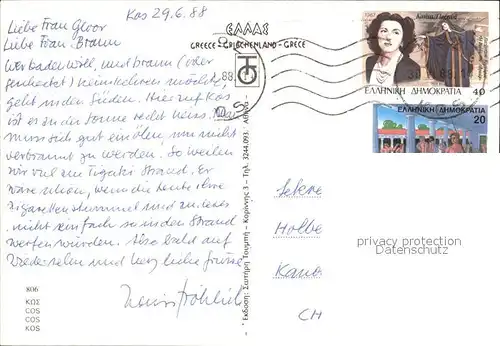 Kos 29.6.88
Liebe Frau Gloor
Liebe Frau Braun
Wer baden will, und braun (oder
heimkehren möchte,
geht in den Süden. Hier auf Kos
ist es an der Sonne recht heiss. Man
muss sich gut einölen, um nicht
verbrannt zu werden. So weilen
wir viel am Tigaki Strand. Es
wäre schön, wenn die Leute ihre
Zigarettenstummel und
nicht einfach so in den Strand
werfen würden. Also bald auf
Wiedersehen und liebe Grüsse
Fröhlich
806
ΚΩΣ
COS
COS
KOS
ΕΛΛΑΣ
GREECE - GRIECHENLAND - GRECE
Εκδοση: Σωτήρη Τουμπή - Καρύτσης 3 - Τηλ. 3244.093 - Αθήνα
ΕΛΛΗΝΙΚΗ ΔΗΜΟΚΡΑΤΙΑ
40
ΕΛΛΗΝΙΚΗ ΔΗΜΟΚΡΑΤΙΑ
20
privacy protection
Datenschutz
CH